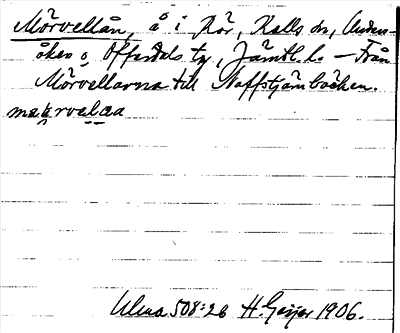 Mörvellån, å i Kör, Kalls sn, Unders-
åkers o Offerdals tg, Jämtl. l. — Från
Mörvellarna till Noffstjärnbäcken.
Ulma 508:26 H. Geijer 1906.